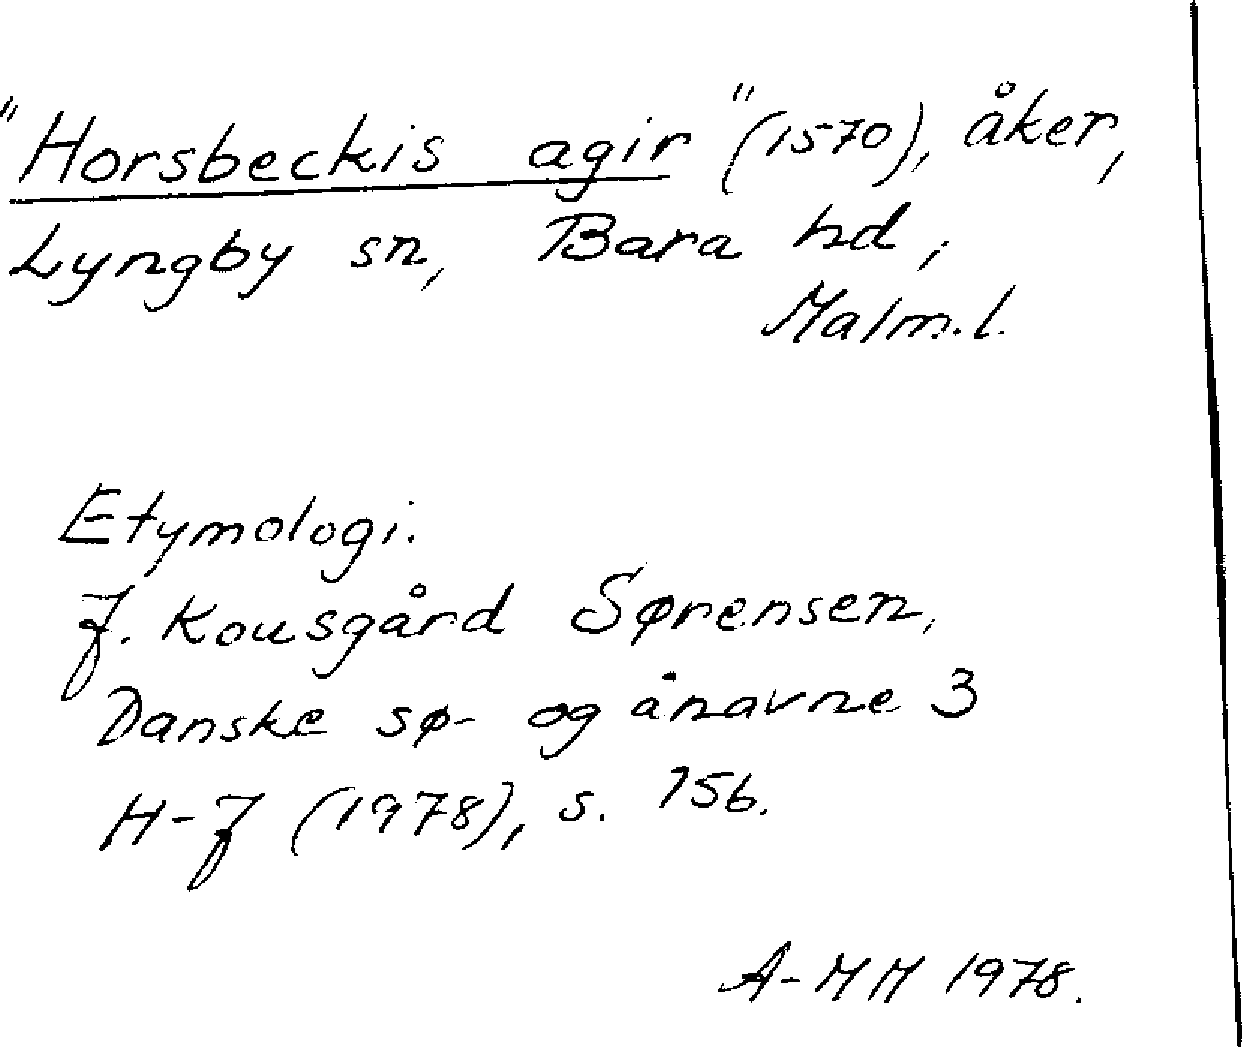 "Horsbeckis agir" (1570), åker,
Lyngby sn, Bara hd,
Malm.l.
Etymologi.
J. Kousgård Sørensen,
Danske sø- og ånavne 3
H-J (1978), s. 156.
A-MM 1978.